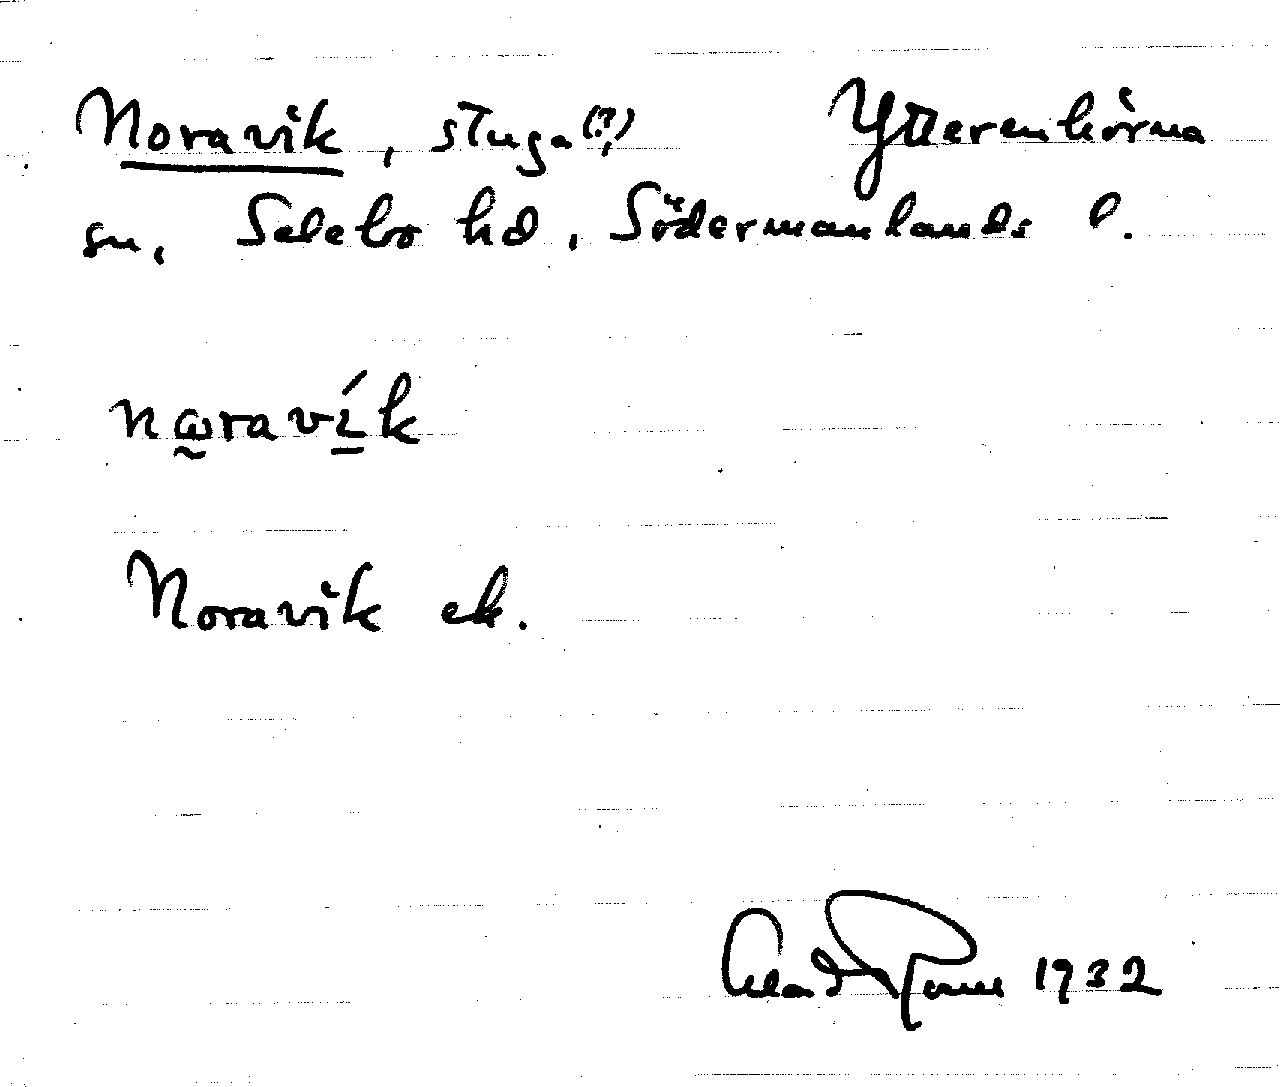 Noravik, stuga(?) Ytterenhörna
sn, Selebo hd, Södermanlands l.
nωravík
Noravik ek.
1932